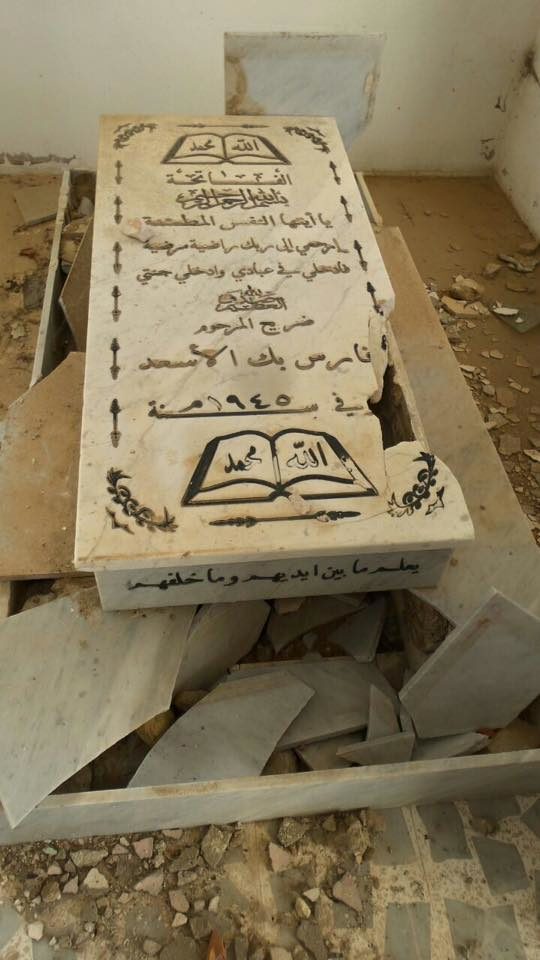 الله محمد
الفاتحة
بسم الله الرحمن الرحيم
يا أيتها النفس المطمئنة
إرجعي إلى ربك راضية مرضية
فادخلي في عبادي وادخلي جنتي
صدق الله العظيم
ضريح المرحوم
فارس بك الأسعد
في سنة ١٩٤٥م
الله محمد
يعلم ما بين ايديهم وما خلفهم